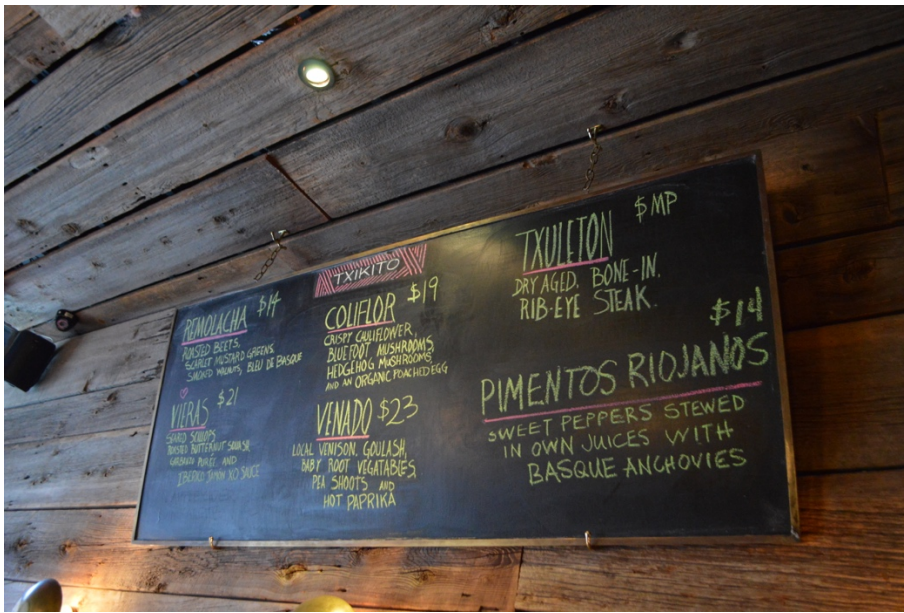 TXIKITO
REMOLACHA $14
ROASTED BEETS,
SCARLET MUSTARD GREENS,
SMOKED WALNUTS, BLEU DE BASQUE
VIERAS $21
SEARED SCALLOPS
ROASTED BUTTERNUT SQUASH,
GARBANZO PUREE, AND
IBERICO JAMON XO SAUCE
COLIFLOR $19
CRISPY CAULIFLOWER,
BLUEFOOT MUSHROOMS,
HEDGEHOG MUSHROOMS,
AND AN ORGANIC POACHED EGG
VENADO $23
LOCAL VENISON, GOULASH,
BABY ROOT VEGATABLES,
PEA SHOOTS AND
HOT PAPRIKA
TXULETON $MP
DRY AGED, BONE-IN,
RIB-EYE STEAK.
$14
PIMENTOS RIOJANOS
SWEET PEPPERS STEWED
IN OWN JUICES WITH
BASQUE ANCHOVIES